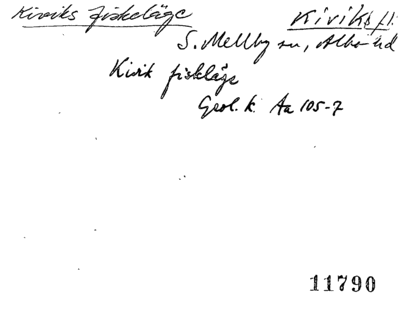 Kiviks fiskeläge Kiviks fl.
S. Mellby sn, Albo hd
Kivik fiskläge
Geol. k. Aa 105-7
11790